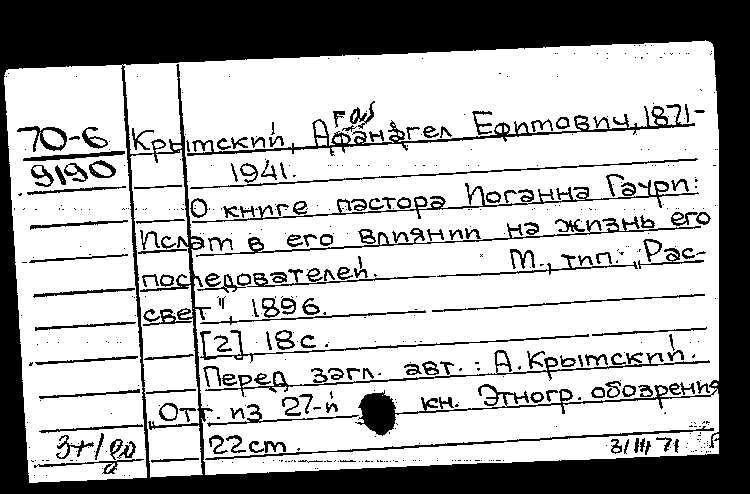 70-6
9190
Крымский, Афанагел Ефимович, 1871-
1941.
О книге пастора Иоганна Гаури:
Ислам в его влиянии на жизнь его
последователей. М., тип. „Рас-
свет", 1896.
[2], 18 с.
Перед загл. авт.: А. Крымский.
„Отт. из 27-й кн. Этногр. обозрения
22 cm.
3/III 71